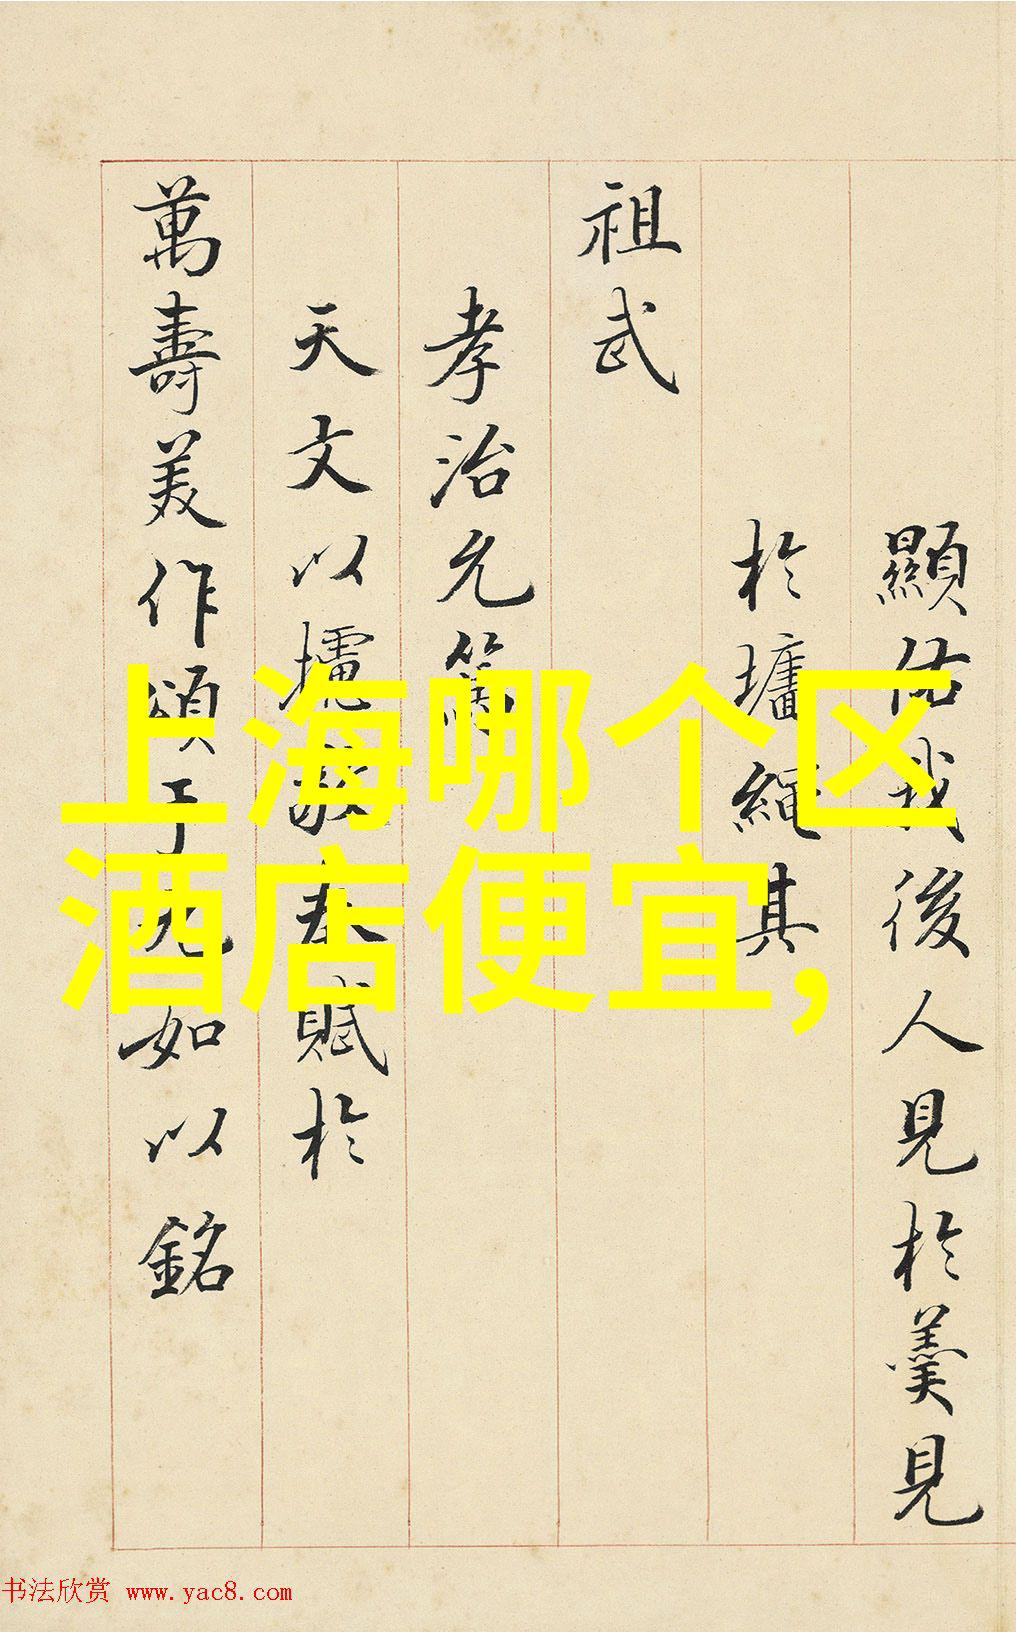 顯佑我後人見於羹見
於墻繩其
祖武
孝治允
天文以攄敬奉賦於
萬壽美作頌于九如以銘
上海哪个区
酒店便宜,
书法欣赏 www.yac8.com